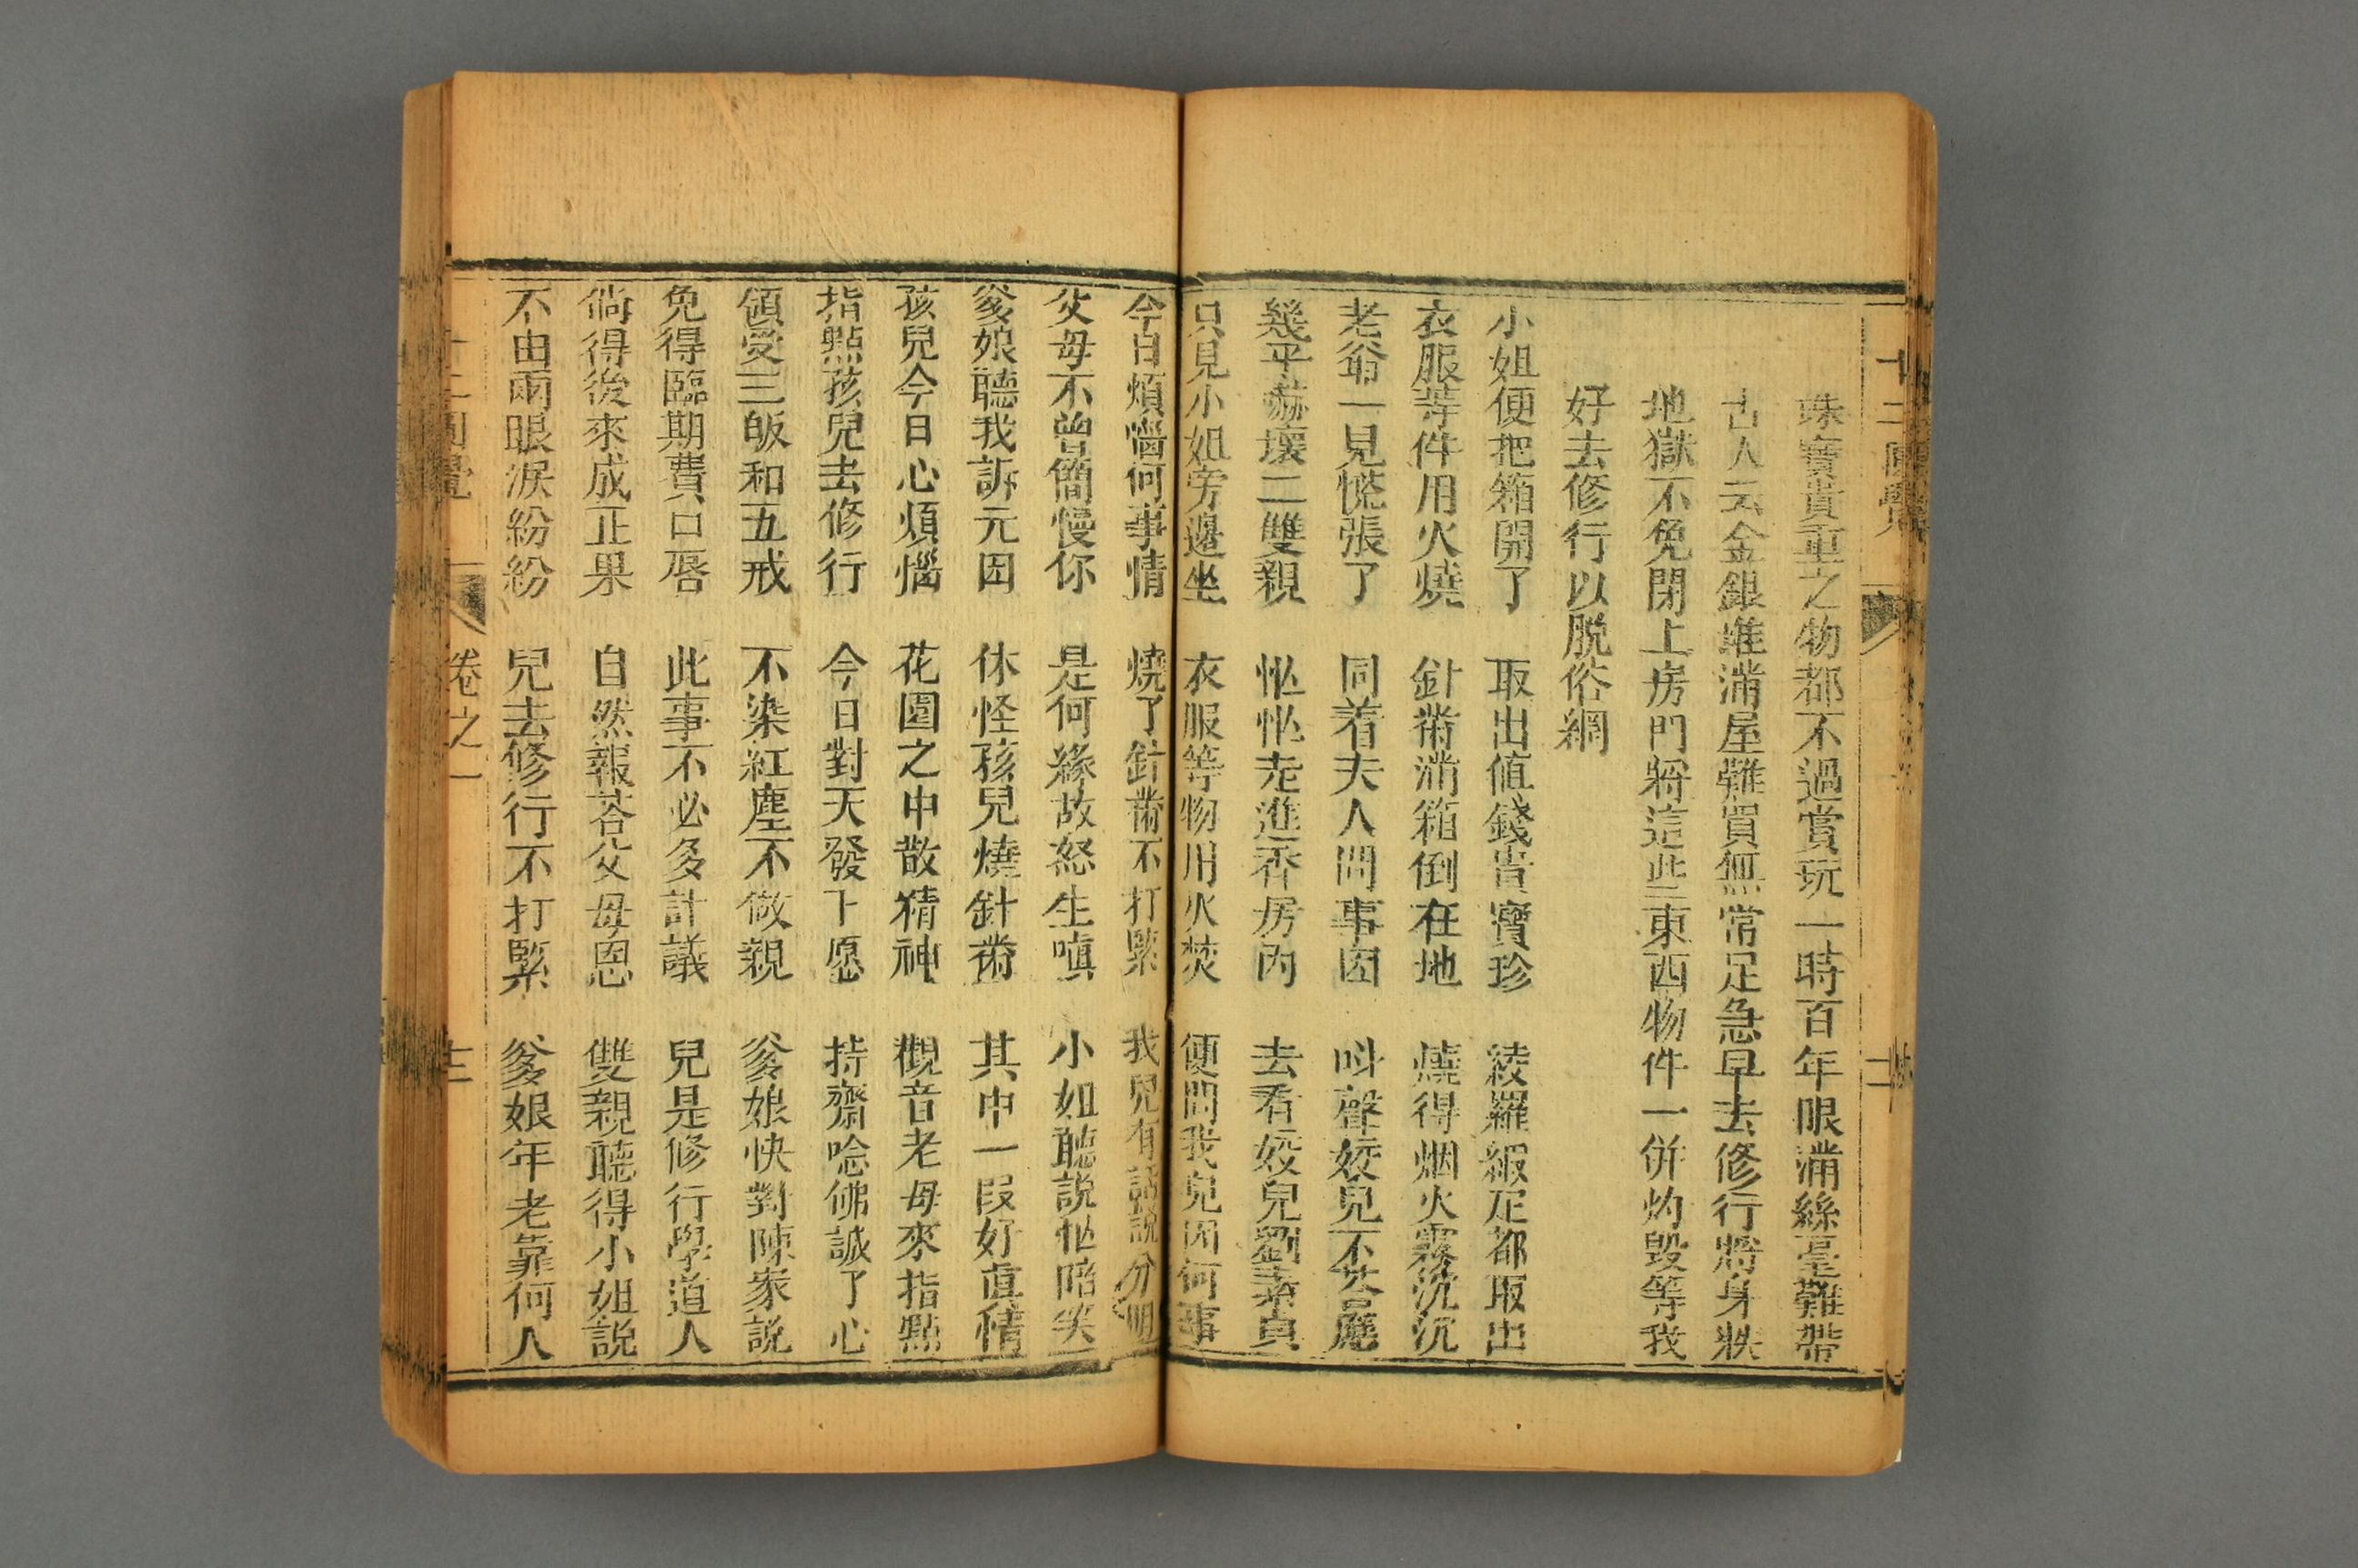 十二圓覺
珠寶貴重之物都不過賞玩一時百年眼滿絲毫難帶
古人云金銀堆滿屋難買無常足急早去修行將身躲
地獄不免閉上房門將這些東西物件一併灼毀等我
好去修行以脱俗網
小姐便把箱開了 取出值錢貴寶珍 綾羅緞疋都取出
衣服等件用火燒 針黹滿箱倒在地 燒得烟火霧沉沉
老爺一見慌張了 同着夫人問事因 呌聲姣兒不荅應
幾乎嚇壞二雙親 忙忙走進香房內 去看姣兒劉素貞
只見小姐旁邊坐 衣服等物用火焚 便問我兒因何事
今日煩惱何事情 燒了針黹不打緊 我兒有話說分明
父母不曾簡慢你 是何緣故怒生嗔 小姐聽説忙陪笑
爹娘聽我訴元因 休怪孩兒燒針黹 其中一段好真情
孩兒今日心煩惱 花園之中散精神 觀音老母來指點
指點孩兒去修行 今日對天發下愿 持齋唸佛誠了心
領受三皈和五戒 不染紅塵不做親 爹娘快對陳家説
免得臨期費口唇 此事不必多計議 兒是修行學道人
倘得後來成正果 自然報荅父母恩 雙親聽得小姐説
不由兩眼淚紛紛 兒去修行不打緊 爹娘年老靠何人
十二圓覺 卷之一